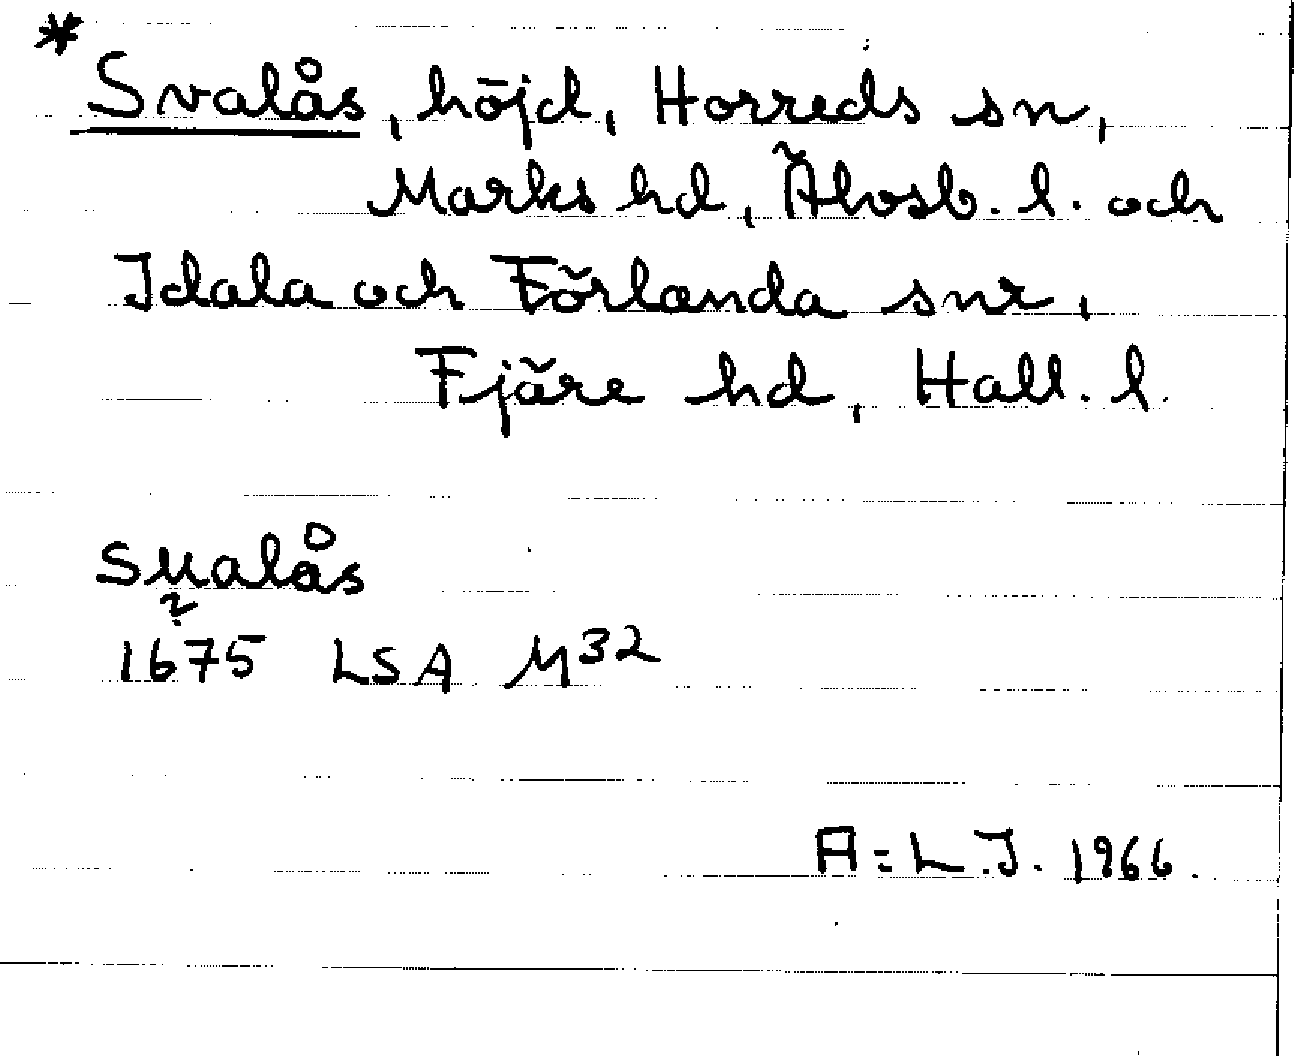 * Svalås, höjd, Horreds sn,
Marks hd, Älvsb. l. och
Idala och Förlanda snr,
Fjäre hd, Hall. l.
Sualås
?
1675 LSA M32
A:L.J. 1966.